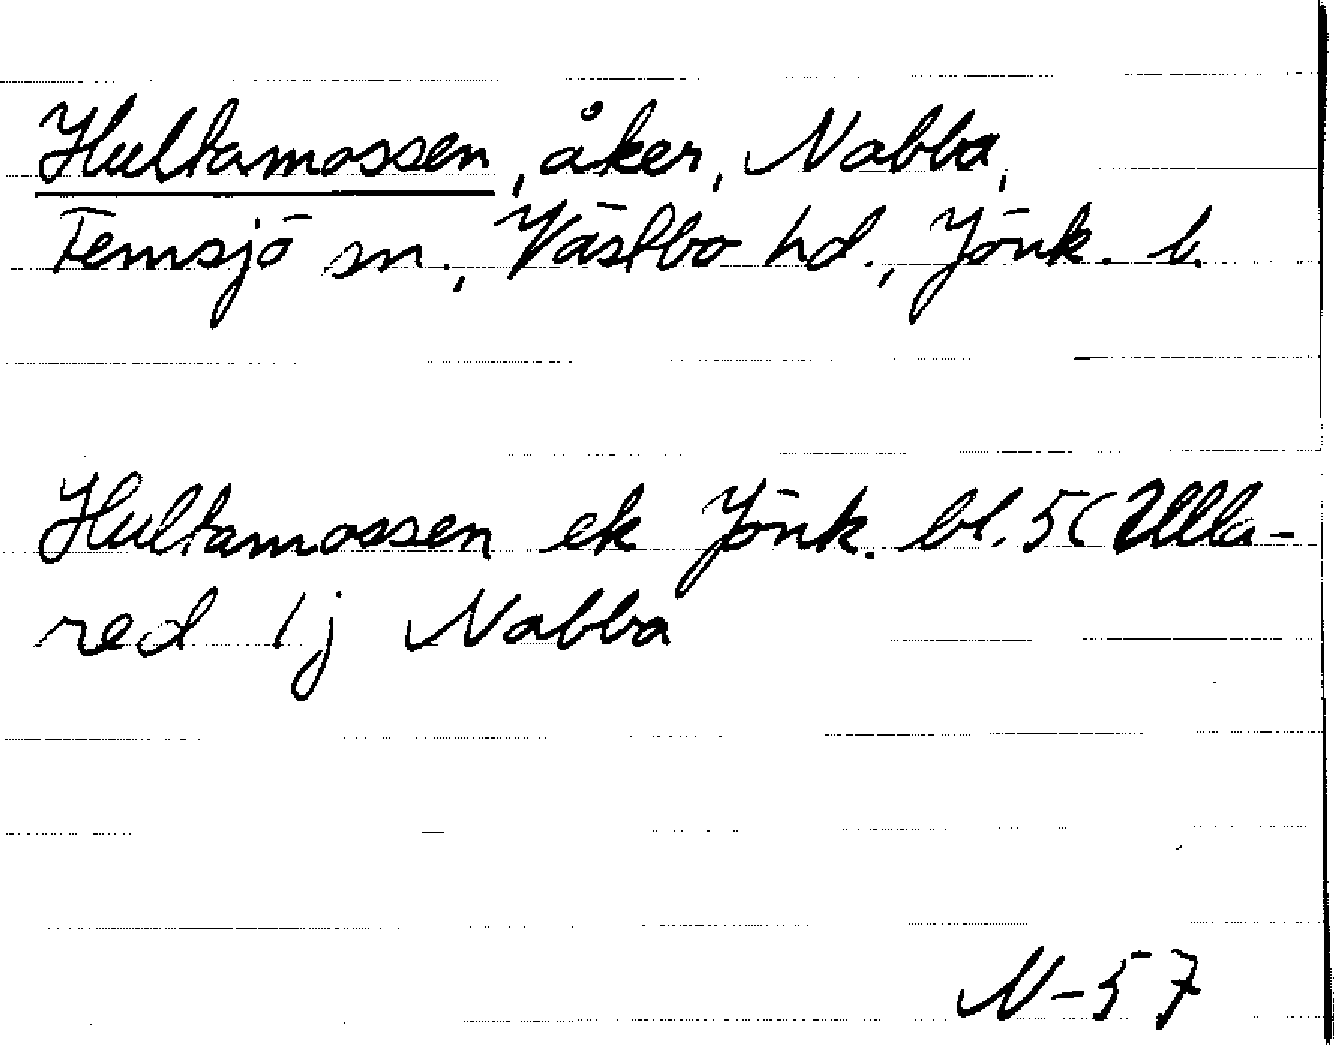 Hultamossen, åker, Nabba,
Femsjö sn., Västbo hd., Jönk. l.
Hultamossen ek Jönk. bl. 5 (Ulla-
red 1j Nabba
N-57